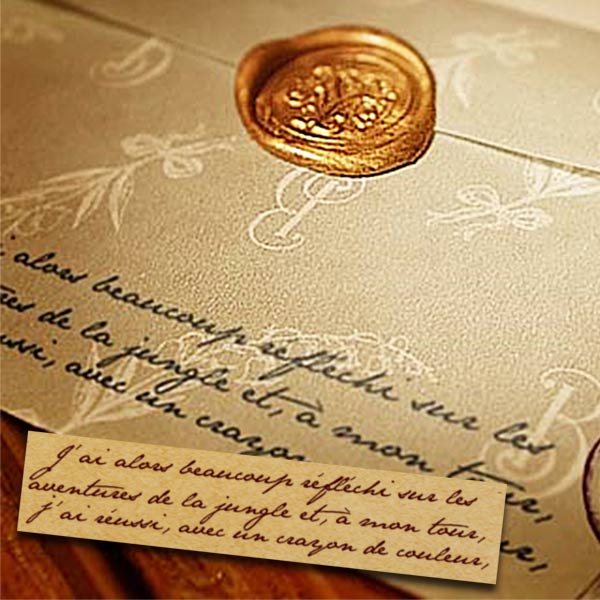 alors beaucoup réfléchi sur les
de la jungle et, à mon tour,
avec un crayon
J'ai alors beaucoup réfléchi sur les
aventures de la jungle et, à mon tour,
j'ai réussi, avec un crayon de couleur,